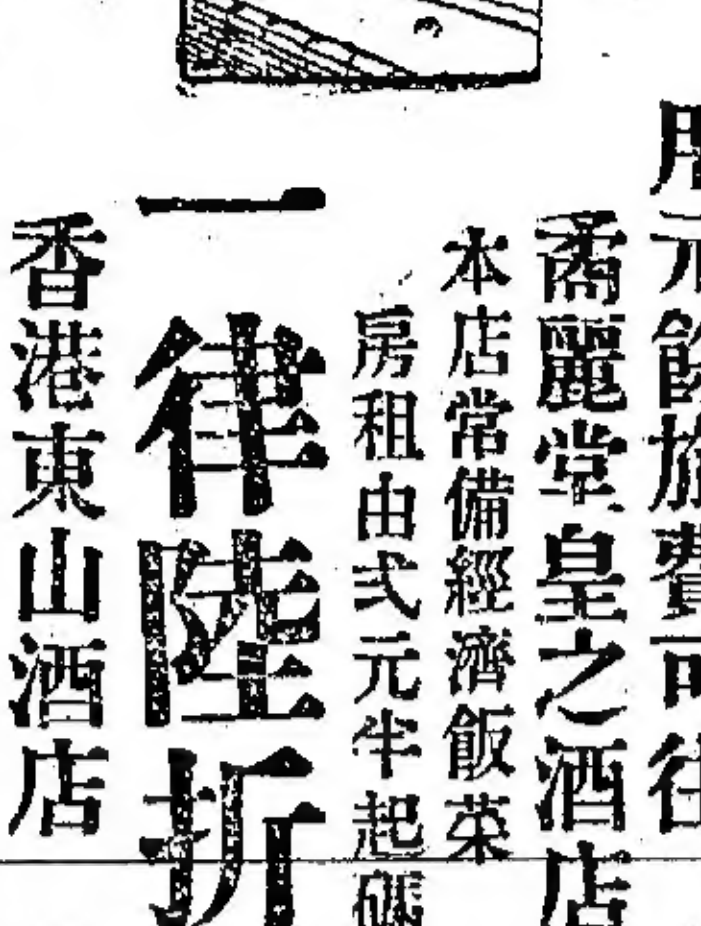 元餘旅費可往
矞麗堂皇之酒店
本店常備經濟飯菜
房租由弍元半起碼
一律陸折
香港東山酒店